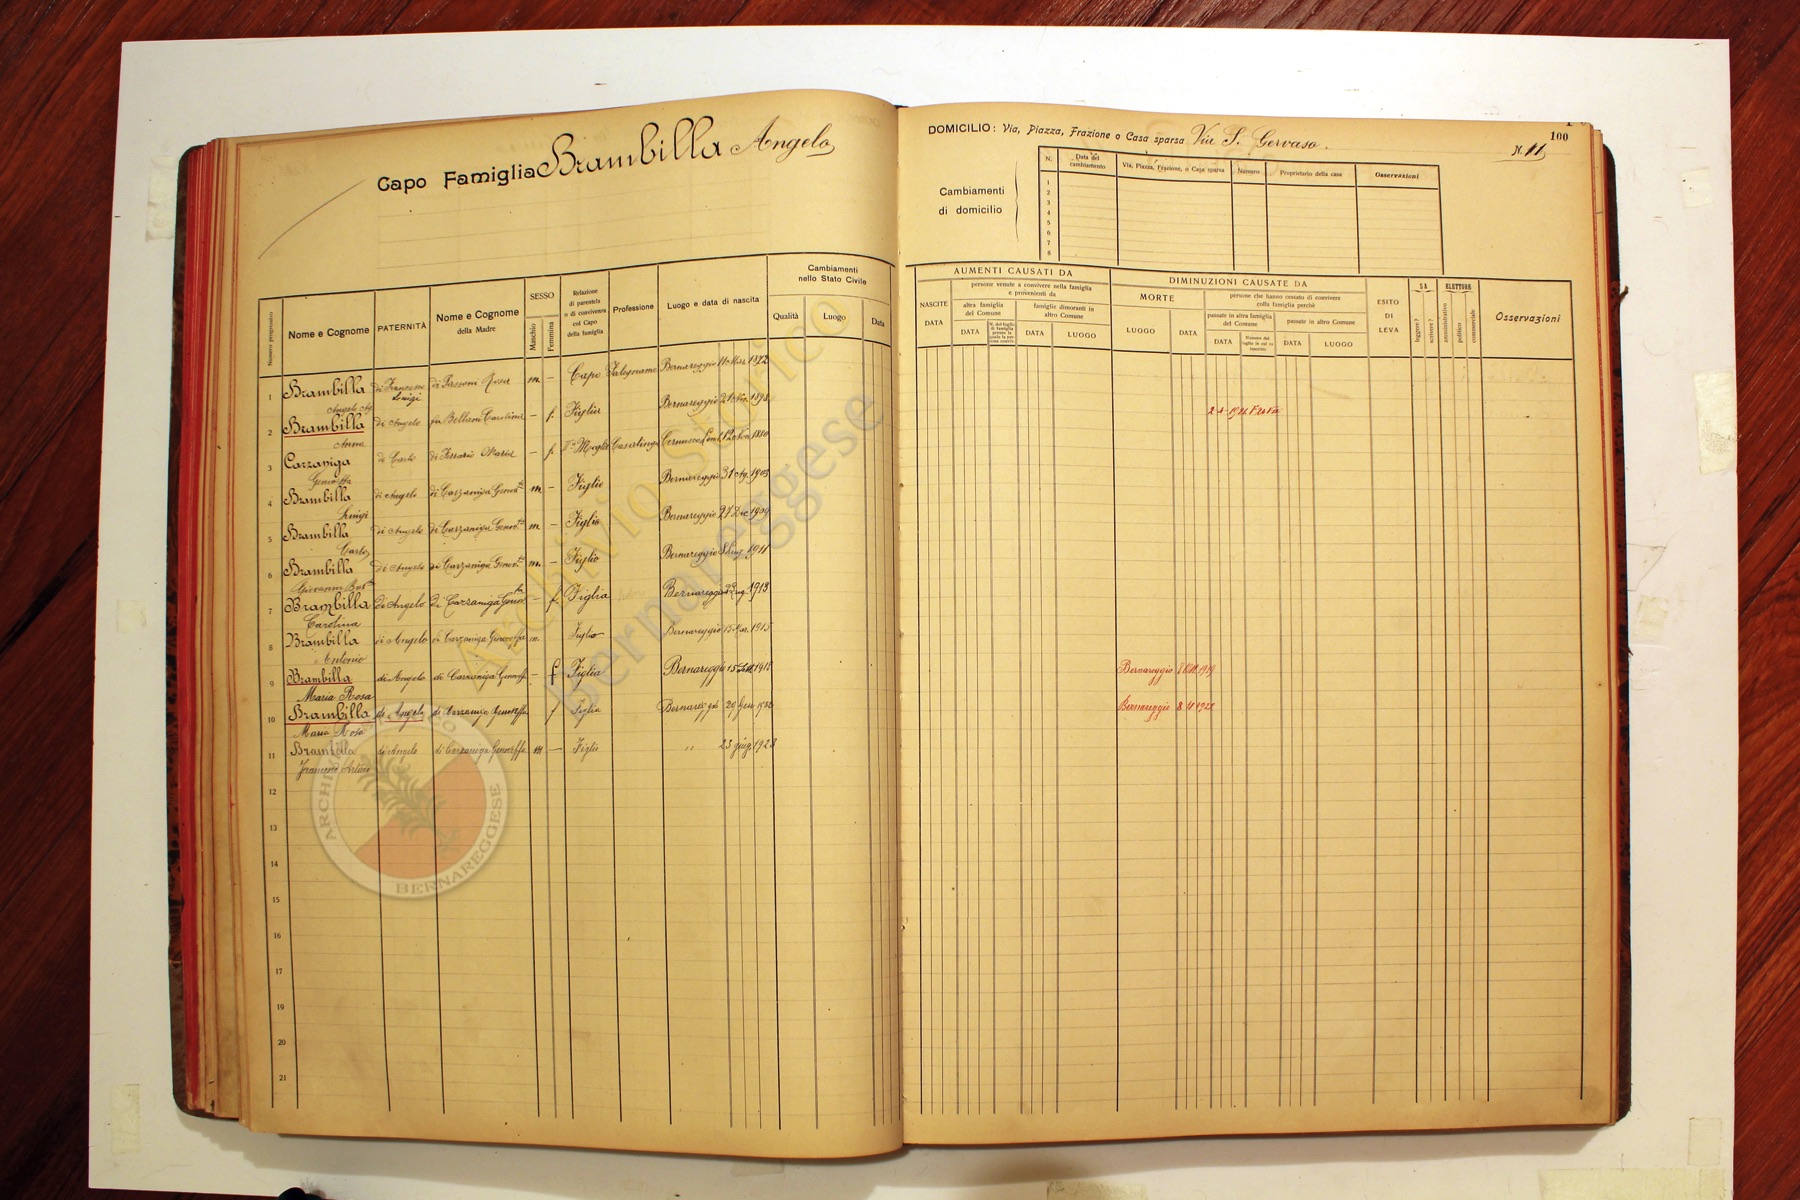 Capo Famiglia Brambilla Angelo
DOMICILIO: Via, Piazza, Frazione o Casa sparsa Via S. Gervaso.
100
N. 11
Cambiamenti
di domicilio
N. Data del cambiamento Via, Piazza, Frazione, o Casa sparsa Numero Proprietario della casa Osservazioni
1
2
3
4
5
6
7
8
Numero progressivo Nome e Cognome PATERNITÀ Nome e Cognome della Madre SESSO Maschio Femmina Relazione di parentela o di convivenza col Capo della famiglia Professione Luogo e data di nascita Cambiamenti nello Stato Civile Qualità Luogo Data
AUMENTI CAUSATI DA
NASCITE DATA
persone venute a convivere nella famiglia e provenienti da
altra famiglia del Comune DATA
famiglie dimoranti in altro Comune DATA LUOGO
DIMINUZIONI CAUSATE DA
MORTE LUOGO DATA
persone che hanno cessato di convivere colla famiglia perchè
passate in altra famiglia del Comune DATA
passate in altro Comune DATA LUOGO
ESITO DI LEVA
SA leggere? scrivere?
ELETTORE amministrativo politico commerciale
Osservazioni
1 Brambilla di Francesco di Passoni Rosa m. — Capo Falegname Bernareggio 11 Mar. 1872
Angelo Luigi
2 Brambilla di Angelo fu Bellani Carolina — f. Figlia Bernareggio 21 Nov. 1898
Anna
3 Carzaniga di Carlo di Ferrario Maria — f. Moglie Casalinga Cernusco Lomb. 12 Nov. 1880
4 Brambilla di Angelo di Carzaniga m. — Figlio Bernareggio 31 Ag. 1905
Luigi
5 Brambilla di Angelo di Carzaniga m. — Figlio Bernareggio 27 Dic. 1909
Carlo
6 Brambilla di Angelo di Carzaniga m. — Figlio Bernareggio 1911
Giovanni
7 Brambilla di Angelo di Carzaniga — f. Figlia Bernareggio 1913
Carolina
8 Brambilla di Angelo di Carzaniga Genoveffa m. Figlio Bernareggio 15 Mar. 1915
Antonio
9 Brambilla di Angelo di Carzaniga — f Figlia Bernareggio 15 1918 Bernareggio 1919
Maria Rosa
10 Brambilla di Angelo di Carzaniga Genoveffa f Figlia Bernareggio 20 Gen. Bernareggio 8.11.1921
Maria Rosa
11 Brambilla di Angelo di Carzaniga Genoveffa m — Figlio " 23 giug 1923
Arturo
12
13
14
15
16
17
18
19
20
21
Archivio Storico
Bernareggese
BERNAREGGESE